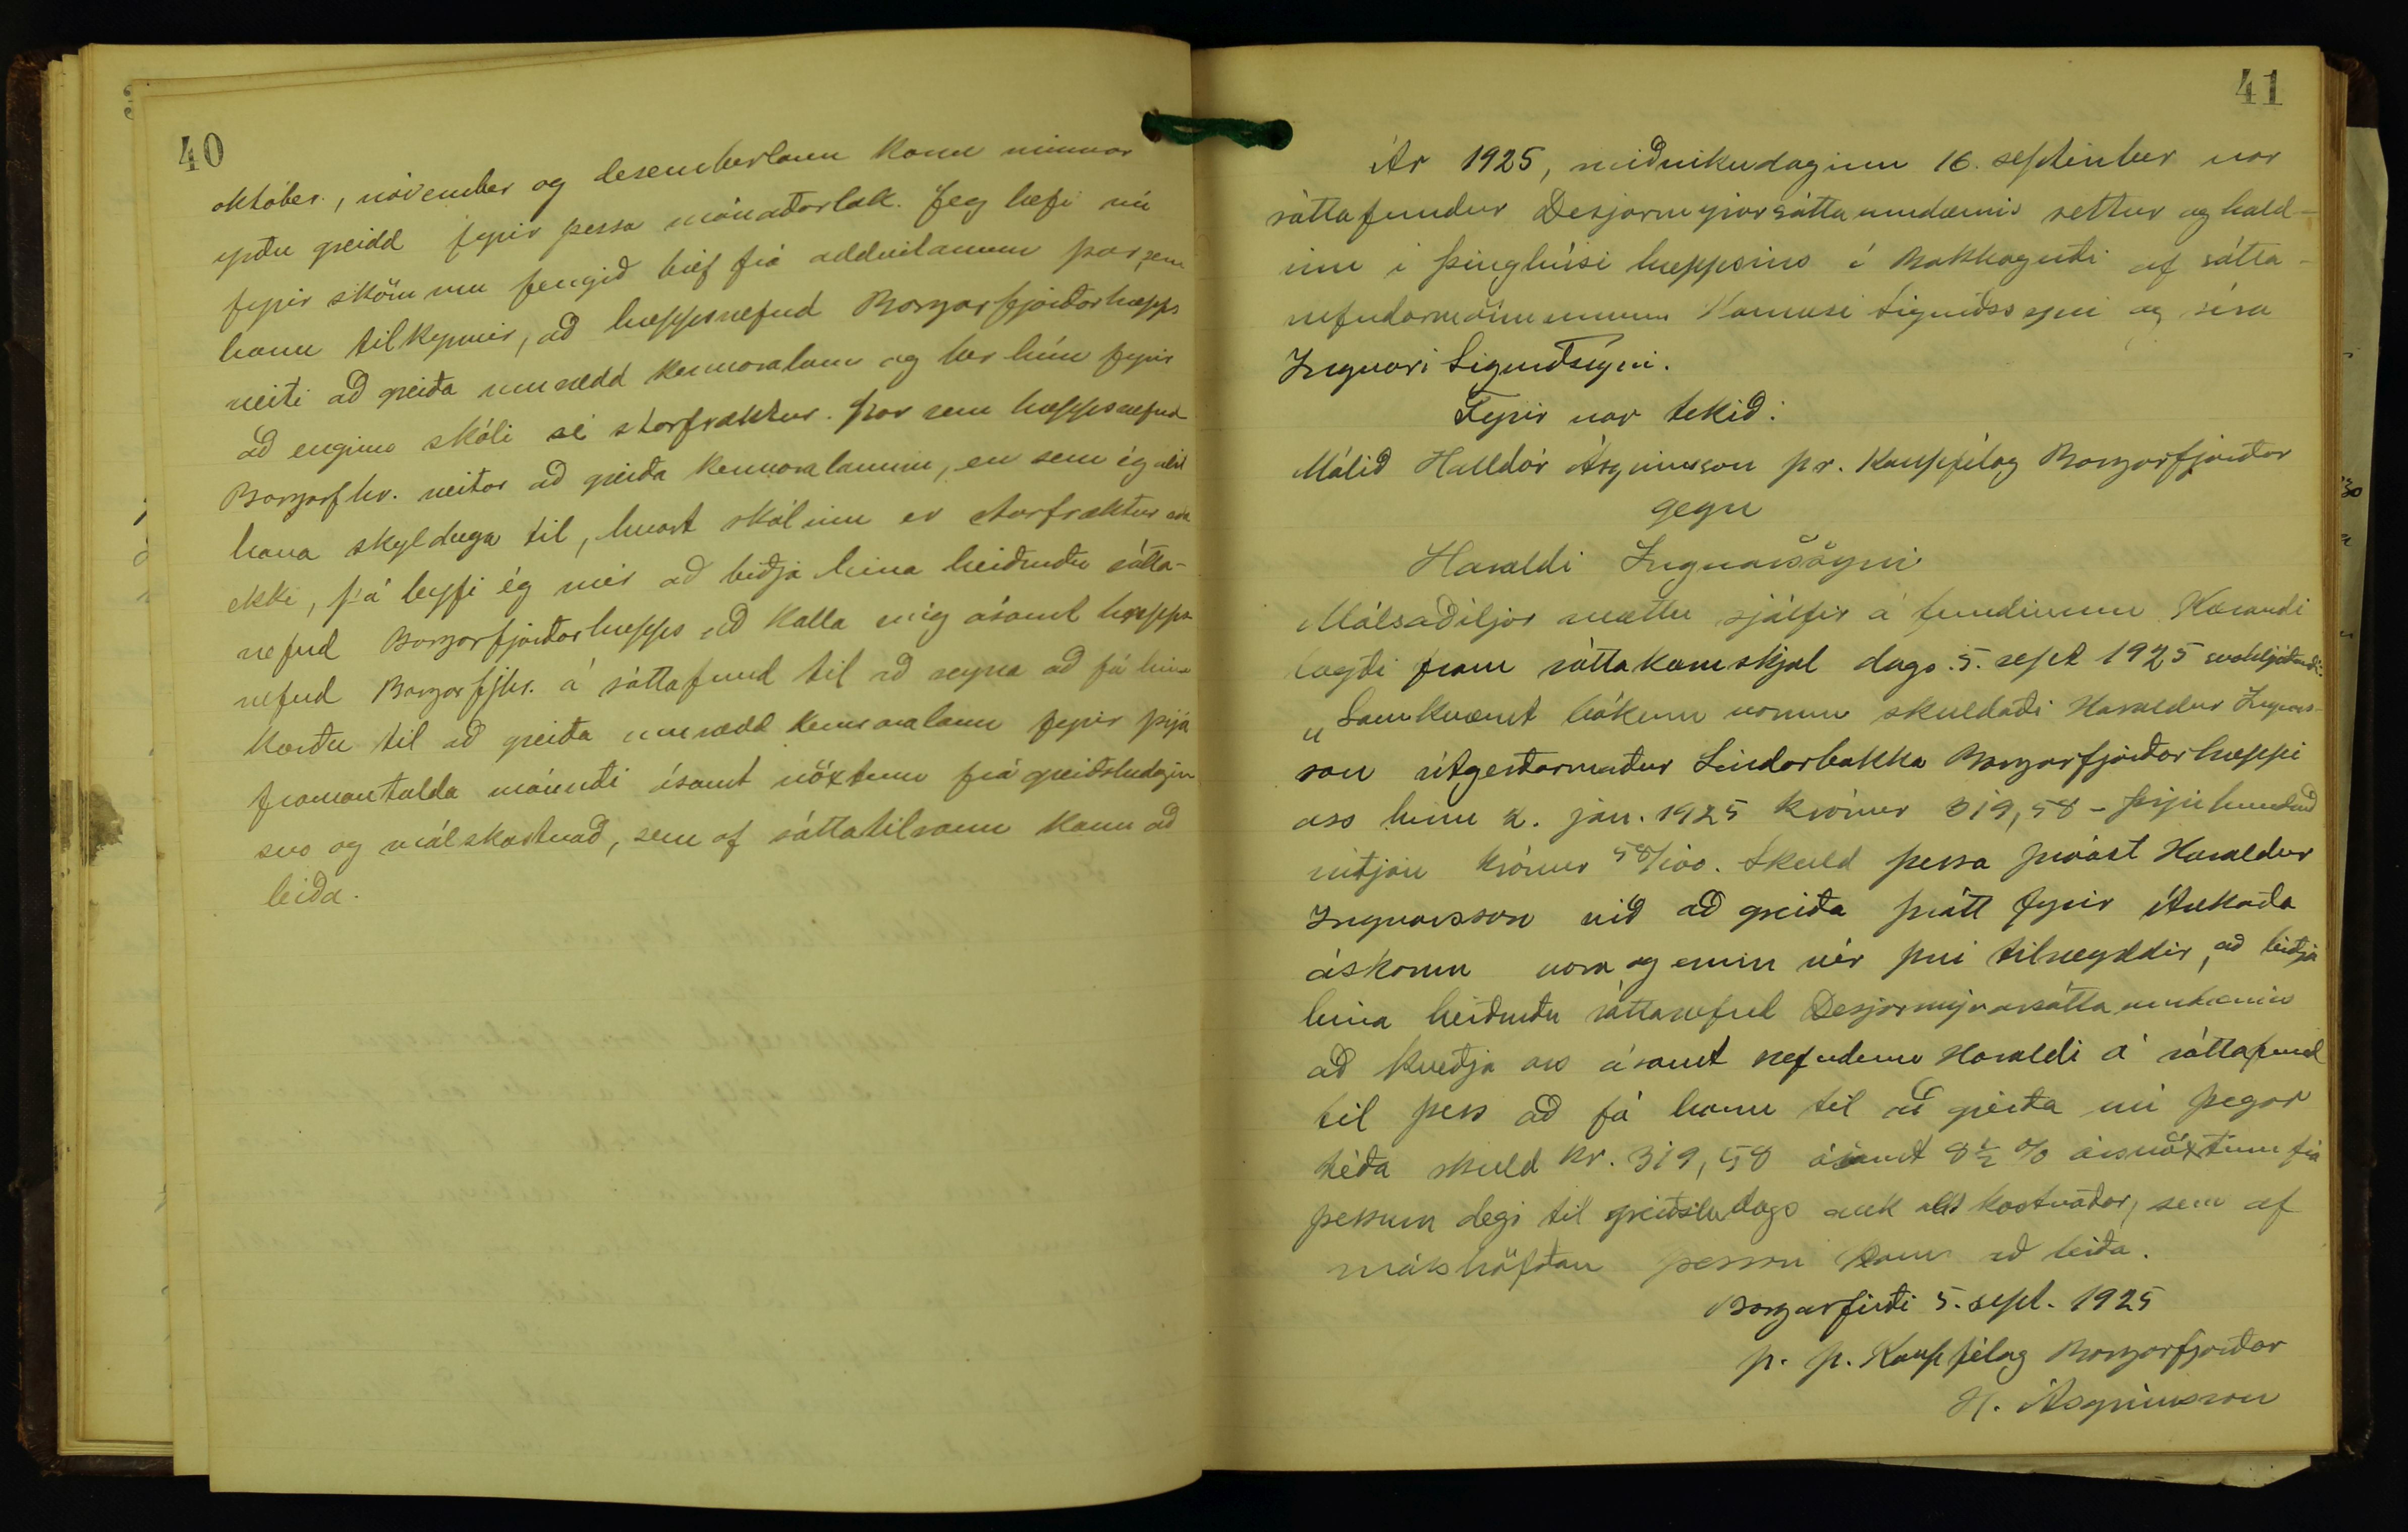 40
október, nóvember og desemberlaun konu minnar
yrðu greidd fyrir þessa mánaðarlok. Jeg hefi nú
fyrir skömmu fengið brjef frá oddvitanum þar sem
hann tilkynnir, að hreppsnefnd Borgarfjarðarhrepps
neiti að greiða umrædd kennaralaun og ber hún fyrir
að enginn skóli sé starfræktur. Þar sem hreppsnefnd
Borgarfhr. neitar að greiða kennaralaunin, en sem ég álít
hana skylduga til, hvort skólinn er starfræktur eða
ekki, þá leyfi ég mér að biðja hina heiðruðu sátta-
nefnd Borgarfjarðarhrepps að kalla mig ásamt hrepps-
nefnd Borgarfjhr. á sáttafund til að reyna að fá hina
kærðu til að greiða umrædd kennaralaun fyrir þrjá
framantalda mánuði ásamt vöxtum frá greiðsludegi
svo og málskostnað, sem af sáttatilraun kann að
leiða.
41
Ár 1925, miðvikudaginn 16. september var
sáttafundur Desjarmýrarsáttaumdæmis settur og hald-
inn í þinghúsi hreppsins í Bakkagerði af sátta-
nefndarmönnunum Hannesi Sigurðssyni og síra
Ingvari Sigurðssyni.
Fyrir var tekið:
Málið Halldór Ásgrímsson pr. Kaupfélag Borgarfjarðar
gegn
Haraldi Ingvarssyni
Málsaðiljar mættu sjálfir á fundinum. Kærandi
lagði fram sáttakæruskjal dags. 5. sept 1925 svohljóðandi:
„Samkvæmt bókum vorum skuldaði Haraldur Ingvars-
son útgerðarmaður Lindarbakka Borgarfjarðarhreppi
oss hinn 2. jan. 1925 krónur 319,58 - þrjú hundruð
nítján krónur 58/100. Skuld þessa þrjóast Haraldur
Ingvarsson við að greiða þrátt fyrir ítrekaða
áskorun vora og erum vér því tilneyddir, að biðja
hina heiðruðu sáttanefnd Desjarmýrarsáttaumdæmis
að kveðja oss ásamt nefndum Haraldi á sáttafund
til þess að fá hann til að greiða nú þegar
téða skuld kr. 319,58 ásamt 8½ % ársvöxtum frá
þessum degi til greiðsludags auk alls kostnaðar, sem af
málshöfðun þessari kann að leiða.
Borgarfirði 5. sept. 1925
p. p. Kaupfélag Borgarfjarðar
H. Ásgrímsson